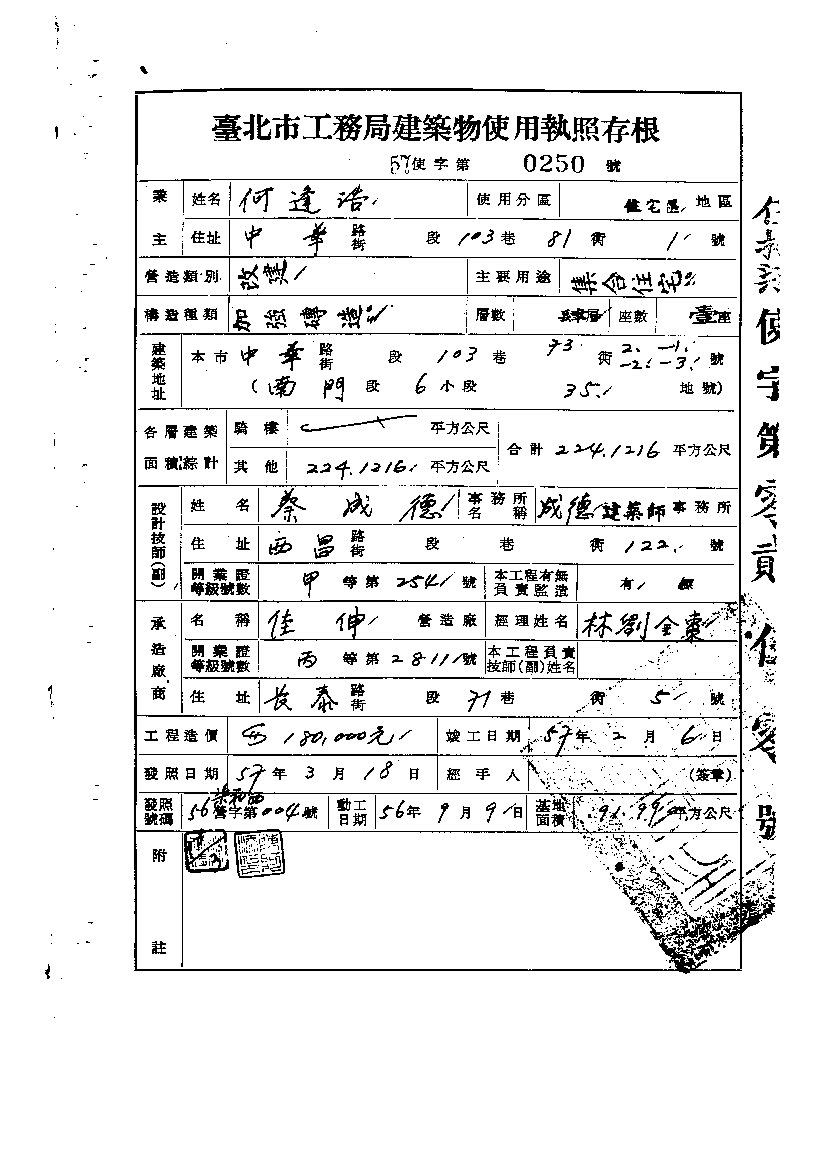 臺北市工務局建築物使用執照存根
57使字第 0250 號
業主 姓名 何逢浩 使用分區 住宅區 地區
住址 中華路街 段 103巷 81衖 1號
營造類別 改建 主要用途 集合住宅
構造種類 加強磚造 層數 層 座數 壹座
建築地址 本市中華路街 段 103巷 73衖 2.-1. -2.-3.號
(南門段 6小段 35. 地號)
各層建築面積綜計 騎樓 平方公尺 合計 224.1216 平方公尺
其他 224.1216 平方公尺
設計技師(副) 姓名 蔡成德 事務所名稱 成德建築師事務所
住址 西昌路街 段 巷 衖 122.號
開業證等級號數 甲等第2541號 本工程有無負責監造 有
承造廠商 名稱 佳伸 營造廠 經理姓名 林劉全棗
開業證等級號數 丙等第2811號 本工程負責技師(副)姓名
住址 長泰路街 段 71巷 衖 5號
工程造價 180,000元 竣工日期 57年2月6日
發照日期 57年3月18日 經手人 (簽章)
發照號碼 56營字第004號 動工日期 56年9月9日 基地面積 91.99平方公尺
附註
使字第零貳伍零號